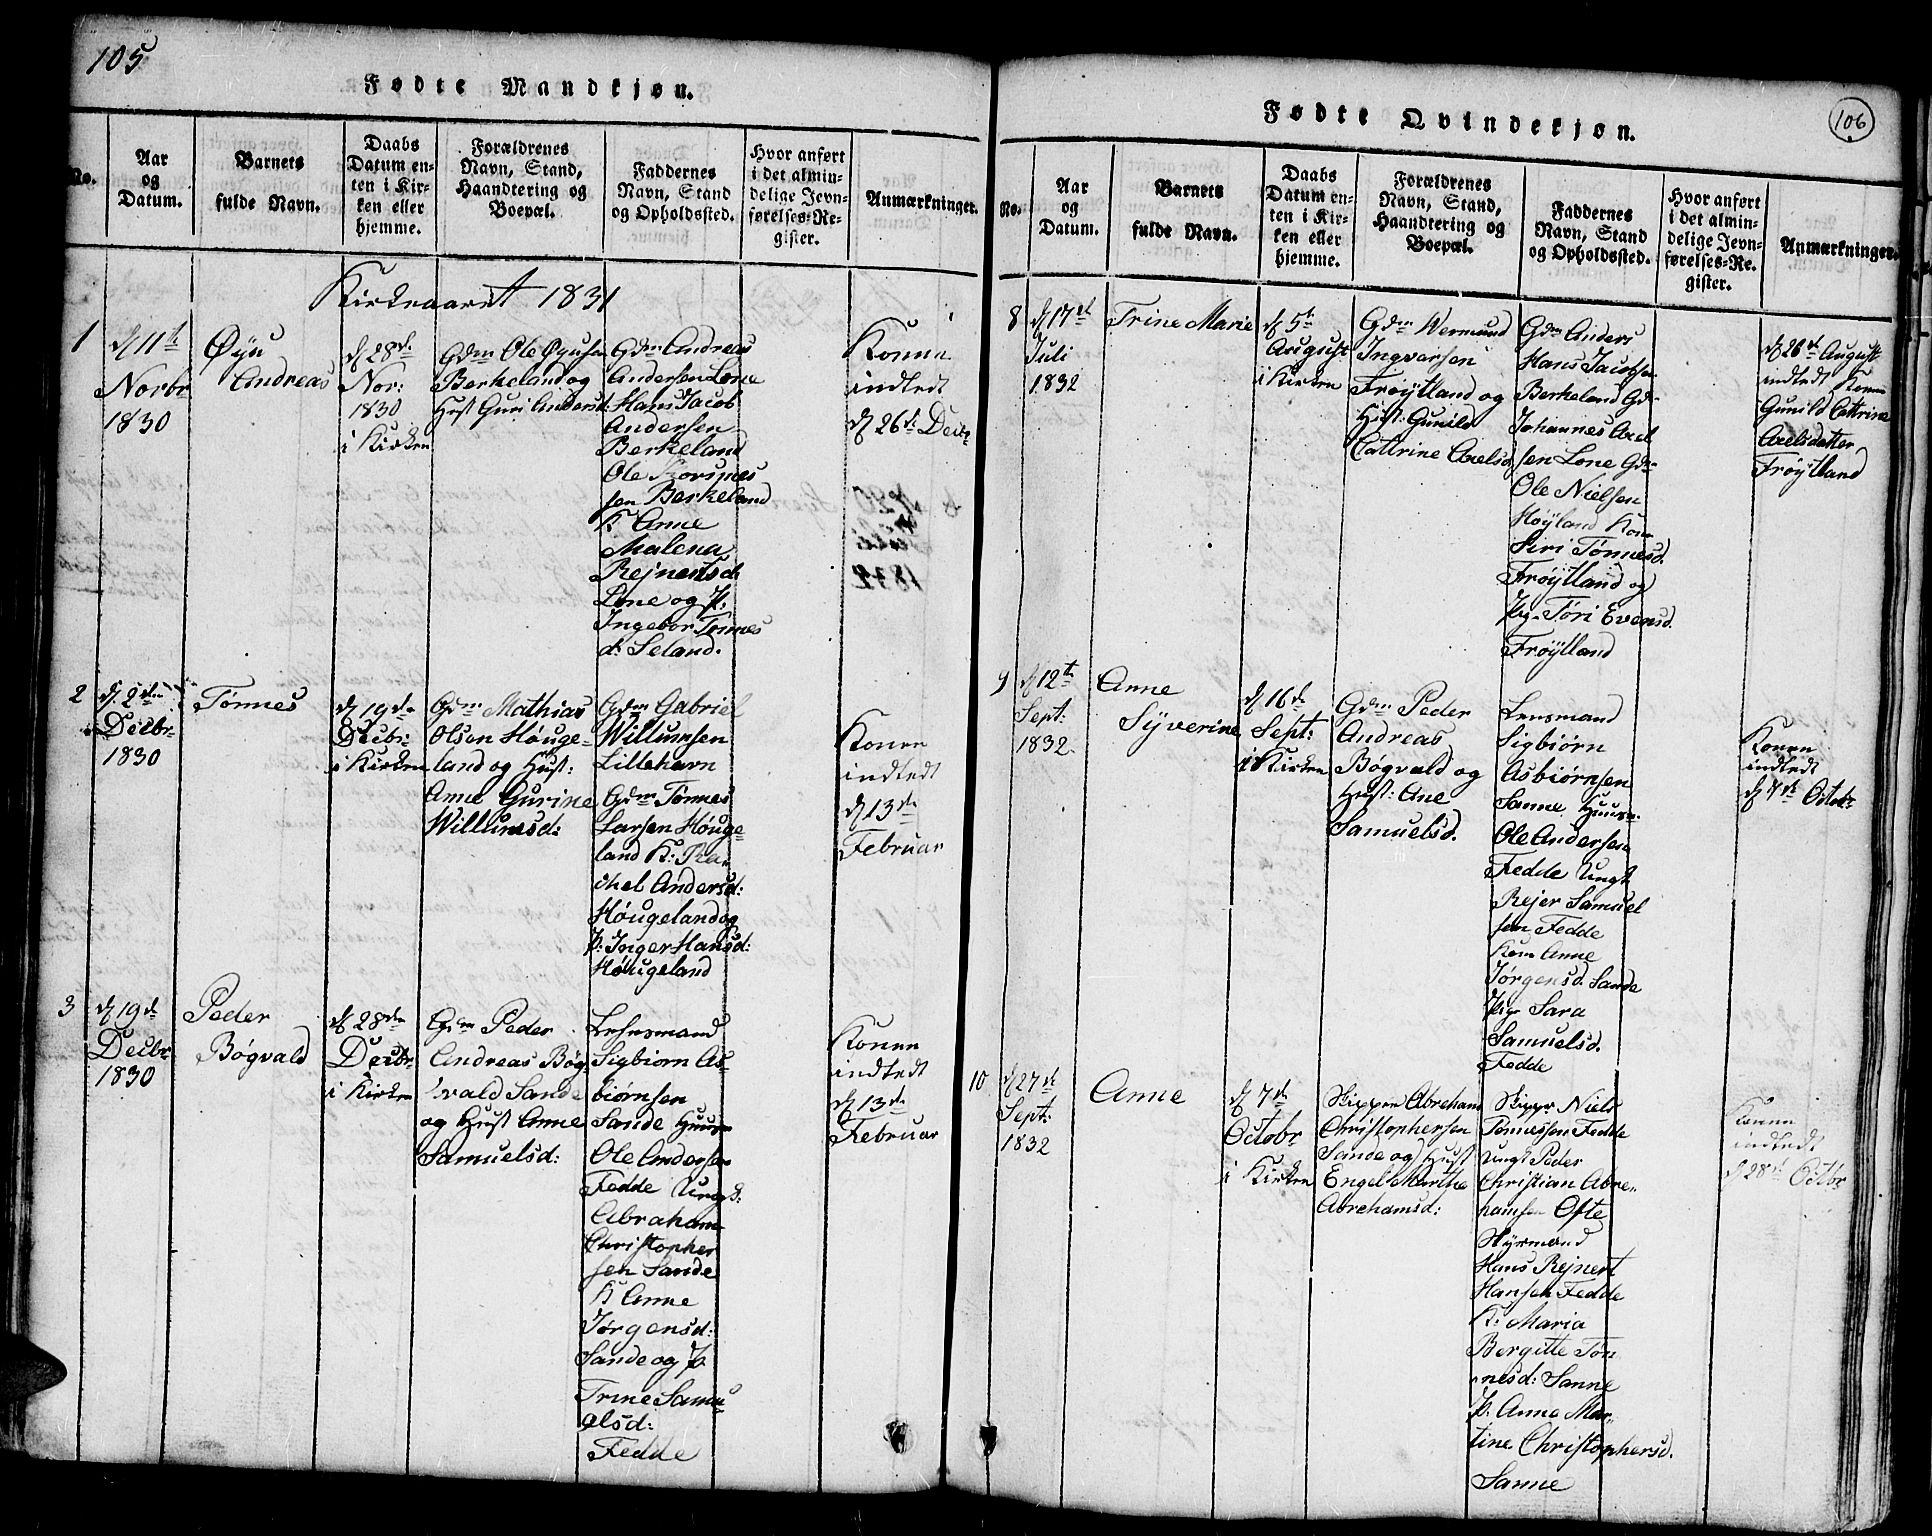 105
Fødte Mandkjøn.
No.
Aar
og
Datum.
Barnets
fulde Navn.
Daabs
Datum en-
ten i Kir-
ken eller
hjemme.
Forældrenes
Navn, Stand,
Haandtering og
Boepæl.
Faddernes
Navn, Stand
og Opholdssted.
Hvor anført
i det almin-
delige Jevn-
førelses-Re-
gister.
Anmærkninger.
Kirkeaaret 1831
1
d 11te
Novbr
1830
Øyu
Andreas
d 28de
Nov:
1830
i Kirken
Gdm Ole Øyusen
Berkeland og
Hust Guri Andersd:
Gdm Andreas
Andersen Lone
Hans Jacob
Andersen
Berkeland
Ole
sen Berkeland
K: Anne
Malena
Rejnertsd:
Lone og P:
Ingebor Tønnes
d: Seland.
Konen
indledt
d 26de Decbr
2
d 2den
Decbr
1830
Tønnes
d 19de
Decbr:
i Kirken
Gdm Mathias
Olsen Høuge-
land og Hust:
Anne Gurine
Willumsd:
Gdm Gabriel
Willumsen
Lillehavn
Gdm Tønnes
Larsen Høuge-
land K: Ra-
chel Andersd:
Høugeland og
P: Inger Hansd:
Høugeland
Konen
indledt
d 13de
Februar
3
d 19de
Decbr
1830
Peder
Bøgvald
d 28de
Decbr:
i Kirken
Gdm Peder
Andreas Bøg
vald Sande
og Hust Anne
Samuelsd:
Lehnsmand
Sigbiørn As-
biørnsen
Sande Huusm
Ole Andersen
Fedde Ungk:
Abraham
Christopher
sen Sande
K Anne
Jørgensd:
Sande og P
Trine Samu
elsd:
Fedde
Konen
indledt
d 13de
Februar
106
Fødte Qvindekjøn.
No.
Aar
og
Datum.
Barnets
fulde Navn.
Daabs
Datum en-
ten i Kir-
ken eller
hjemme.
Forældrenes
Navn, Stand,
Haandtering og
Boepæl.
Faddernes
Navn, Stand
og Opholdssted.
Hvor anført
i det almin-
delige Jevn-
førelses-Re-
gister.
Anmærkninger.
8
d 17de
Juli
1832
Trine Marie
d 5te
August
i Kirken
Gdm Wermund
Ingversen
Frøytland og
Hust: Gunild
Cattrine Axelsd
Gdm Anders
Hans Jacobsen
Berkeland Gdm
Johannes Axel
sen Lone Gdm
Ole Nielsen
Høyland Kone
Siri Tønnesd.
Frøytland og
Pige Tøri Evensd.
Frøytland
d 26de August
indledt Konen
Gunild Cattrine
Axelsdatter
Frøytland
9
d 12te
Sept:
1832
Anne
Syverine
d 16de
Sept:
i Kirken
Gdm Peder
Andreas
Bøgvald og
Hust: Ane
Samuelsd.
Lensmand
Sigbiørn
Asbiørnsen
Sanne Huusm.
Ole Andersen
Fedde Ungk
Rejer Samuel
sen Fedde
Kone Anne
Jørgensd. Sande
Pige Sara
Samuelsd.
Fedde
Konen
indledt
d 7de Octobr
10
d 27de
Sept:
1832
Anne
d 7de
Octobr
i Kirken
Skipper Abreham
Christophersen
Sande og Hust
Engel Marthe
Abrehamsd:
Skippr Niels
Tønnessen Fedde
Ungk Peder
Christian Abre-
hamsen Ofte
Styrmand
Hans Rejnert
Hansen Fedde
K: Maria
Bergitte Tøn
nesd: Sanne
P: Anne Mar-
tine Christophersd.
Sanne
Konen
indledt
d 28de Octobr